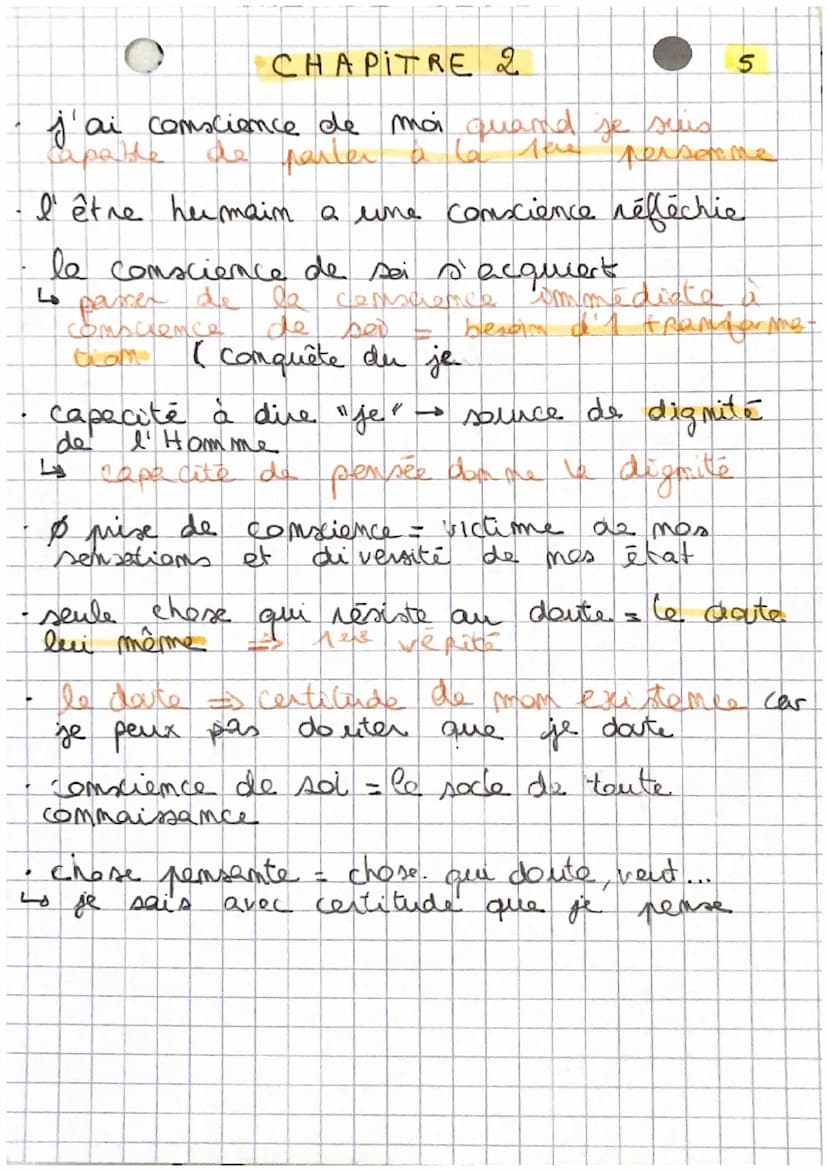 CHAPITRE 2 5
. j'ai conscience de moi quand je suis
capable de parler à la 1ère personne
. l'être humain a une conscience réfléchie
. la conscience de soi s'acquiert
↳ passer de la conscience immédiate à
conscience de soi = besoin d'1 transforma-
tion ( conquête du je
. capacité à dire "je" → source de dignité
de l'Homme
↳ capacité de pensée donne la dignité
. ∅ prise de conscience = victime de mes
sensations et diversité de mes état
. seule chose qui résiste au doute = le doute
lui même => 1ère vérité
. le doute => certitude de mon existence car
je peux pas douter que je doute
. conscience de soi = le socle de toute
connaissance
. chose pensante = chose qui doute, veut...
↳ je sais avec certitude que je pense